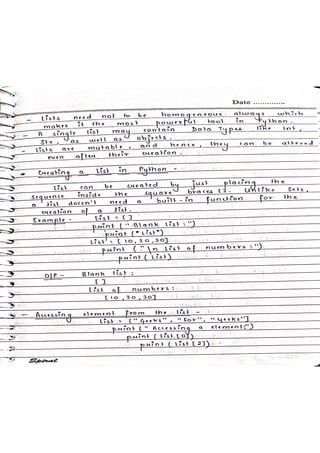 Date ..............
- Lists need not to be homogeneous always which
makes it the most powerful tool in Python.
- A single list may contain Data Types like Int,
Str, as well as objects.
- Lists are mutable, and hence, they can be altered
even after their creation.
- Creating a List in Python -
List can be created by just placing the
sequence inside the square braces []. Unlike Sets,
a list doesn't need a built-in function for the
creation of a list.
Example - List = [ ]
print (" Blank list :")
print ("List")
List = [10, 20, 30]
print ("\n List of numbers :")
print (List)
O/P - Blank list :
[ ]
List of numbers:
[10, 20, 30]
- Accessing element from the list -
List = ["Geeks", "For", "Geeks"]
print (" Accessing a element")
print (list [0])
print (list [2])
Spiral